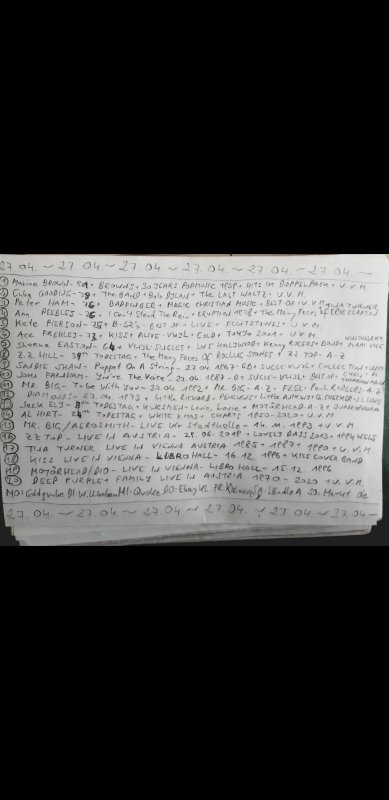 27.04. ~ 27.04 ~ 27.04 ~ 27.04 ~ 27.04 ~ 27.04. ~
1 Maxine BROWN - BROWNS + 30 YEARS POPMUSIC 1959 + HITS IM DOPPELPACK + U.V.M.
2 Cuba GOODING - 79 + THE BAND + Bob DYLAN + THE LAST WALTZ + U.V.M.
3 Peter HAM - 76 + BADFINGER + MAGIC CHRISTIAN MUSIC + BEST OF + U.V.M. TINA TURNER
4 Ann PEEBLES - 76 - I Can't Stand The Rain + ERUPTION 1978 + The Many Faces ERIC CLAPTON
5 Kate PIERSON - 75 + B-52's - BEST OF + LIVE + FLINTSTONES + U.V.M.
6 Ace FREHLEY - 72 + KISS + ALIVE - VINYL + GOLD + TOKYO 2001 + U.V.M.
7 Sheena EASTON - 64 + VINYL-SINGLES + LIVE HOLLYWOOD + Kenny ROGERS + BOND + MIAMI VICE
8 Z.Z. HILL - 39th TODESTAG + The Many Faces OF ROLLING STONES + ZZ TOP - A-Z
9 SANDIE SHAW - Puppet On A String - 27.04.1967 - GB + SINGLE VINYL + COLLECTION
10 John FARNHAM - You're The Voice - 27.04.1987 - D + SINGLE - VINYL + BEST OF
11 MR. BIG - To Be With You - 27.04.1992 + MR. BIG - A-Z - FREE + Paul RODGERS - A-Z
12 DIAMONDS - 27.04.1973 + Little RICHARD + PENGUINS + Little ANTHONY + CH. CHECKER
13 Jack ELY - 8th TODESTAG + KINGSMEN - Louie, Louie + MOTÖRHEAD - A-Z
14 AL HIRT - 24th TODESTAG + WHITE XMAS + CHARTS 1950-2020 + U.V.M.
15 MR. BIG / AEROSMITH - LIVE Wr. Stadthalle - 14.11.1993 + U.V.M.
16 ZZ TOP - LIVE IN AUSTRIA - 29.06.2019 + LOVELY DAYS 2013 + 1994 WELS
17 TINA TURNER LIVE IN VIENNA AUSTRIA 1985 + 1987 + 1990 + U.V.M.
18 KISS LIVE IN VIENNA - LIBRO HALL - 16.12.1996 + KISS COVER BAND
19 MOTÖRHEAD/DIO - LIVE IN VIENNA - LIBRO HALL - 15.12.1996
20 DEEP PURPLE + FAMILY LIVE IN AUSTRIA 1970 - 2020 + U.V.M.
MO: Goldgrube DI Willhaben MI - Quoka DO: Ebay Kl. FR SA Ländle A. SO. Markt de
27.04 ~ 27.04 ~ 27.04 ~ 27.04 ~ 27.04 ~ 27.04